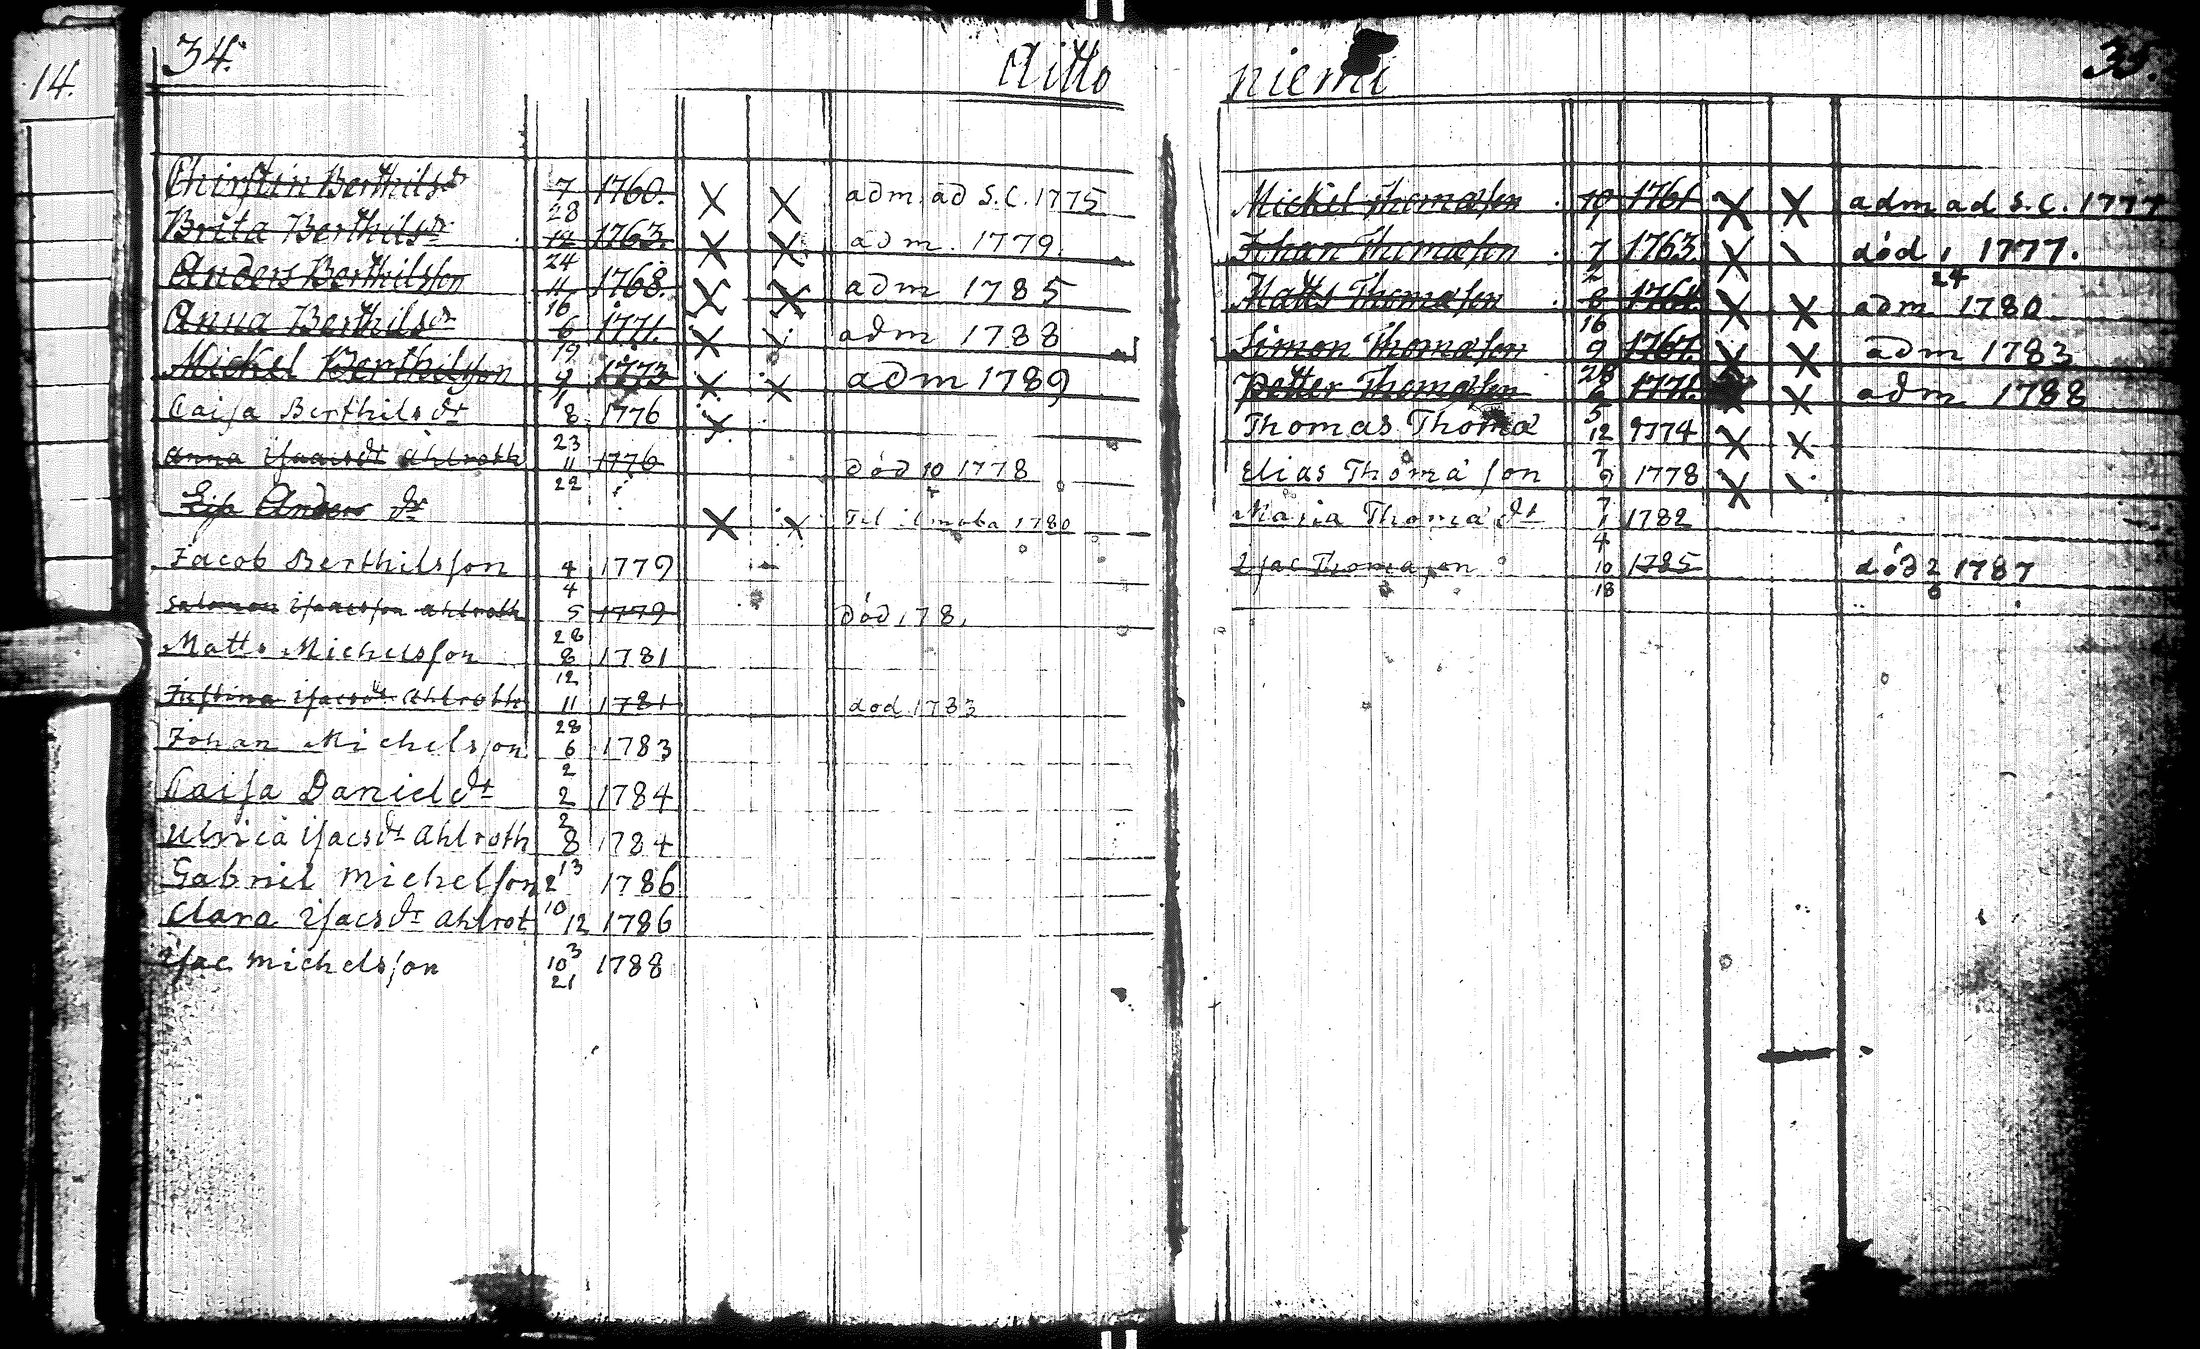 14.
34.
ditto
Chirstin Berthilsdr 7/28 1760. X X adm. ad S.C. 1775
Brita Berthilsdr 12/24 1763. X X adm. 1779.
Anders Berthilsson 11/16 1768. X X adm 1785
Anna Berthilsdr 6/19 1771. X adm 1788
Mickel Berthilsson 1773 X X adm 1789
Caisa Berthilsdt 8/23 1776 X
Anna Isaacsdt Ahlroth 11/22 1776 död 10 1778
Lisa Anders dr X X Til 1780
Jacob Berthilsson 4/4 1779
Salomon Isaacsson Ahlroth 5/28 1779 död 178
Matts Michelsson 8/12 1781
Justina Isacsdt Ahlroth 11/28 1781 död 1783
Johan Michelsson 6/2 1783
Caisa Danieldt 2/2 1784
Ulrica Isacsdt Ahlroth 8/13 1784
Gabriel Michelson 2/10 1786
Clara Isacsdt Ahlrot 12/3 1786
Isac Michelsson 10/21 1788
niemi
35.
Michel Thomasson 10/1 1761 X X adm ad S.C. 1777
Johan Thomasson 7/2 1763. X död 1/24 1777.
Matts Thomasson 8/16 1764. X X adm 1780
Simon Thomasson 9/28 1767. X X adm 1783
Petter Thomasson 6/5 1771. X adm 1788
Thomas Thoma 12/7 1774 X X
Elias Thomasson 9/7 1778 X
Maria Thomadt 1/4 1782
Isac Thomason 10/18 1785 död 2/6 1787